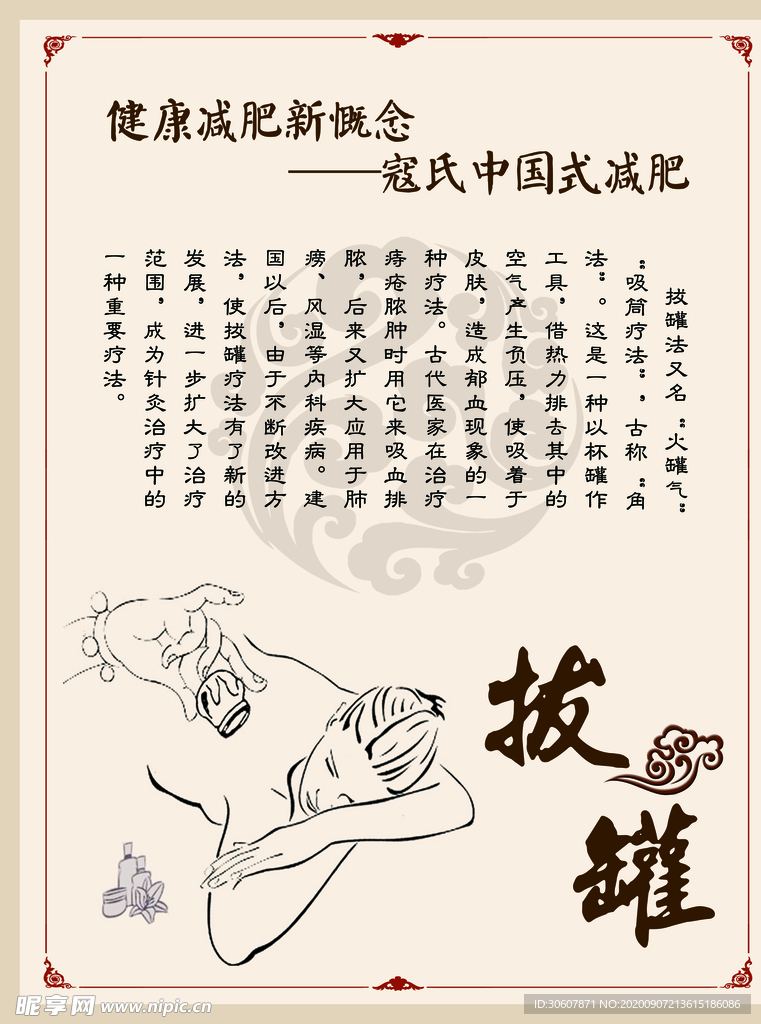 健康减肥新慨念
——寇氏中国式减肥
拔罐法又名“火罐气”
“吸筒疗法”，古称“角
法”。这是一种以杯罐作
工具，借热力排去其中的
空气产生负压，使吸着于
皮肤，造成郁血现象的一
种疗法。古代医家在治疗
痔疮脓肿时用它来吸血排
脓，后来又扩大应用于肺
痨、风湿等内科疾病。建
国以后，由于不断改进方
法，使拔罐疗法有了新的
发展，进一步扩大了治疗
范围，成为针灸治疗中的
一种重要疗法。
拔
罐
昵享网 www.nipic.cn
ID:30607871 NO:20200907213615186086